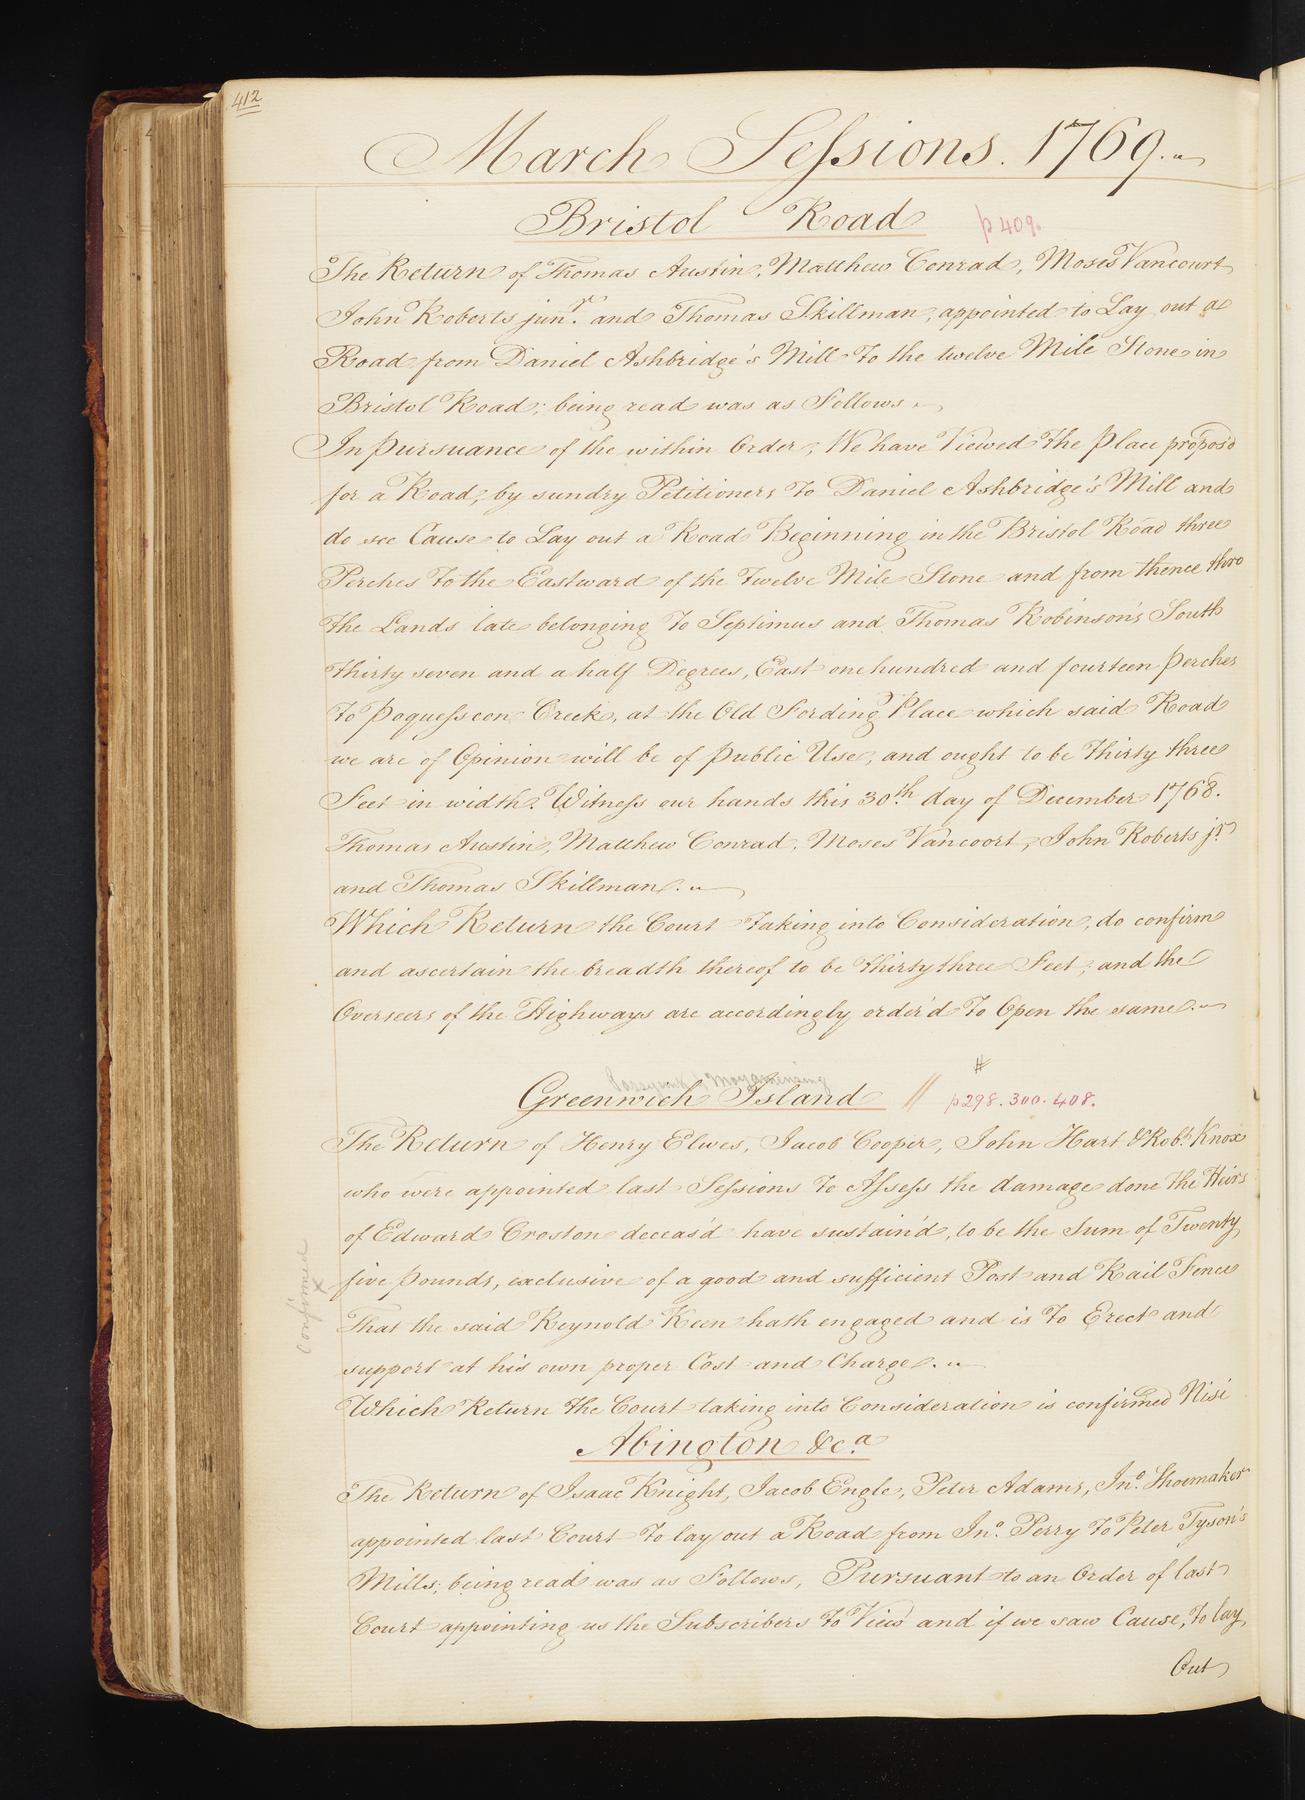 412
March Sessions. 1769.
Bristol Road p 409.
The Return of Thomas Austin, Matthew Conrad, Moses Vancourt
John Roberts junr. and Thomas Skillman, appointed to Lay out a
Road from Daniel Ashbridge's Mill To the twelve Mile Stone in
Bristol Road; being read was as Follows
In pursuance of the within Order, We have Viewed the place propos'd
for a Road, by sundry Petitioners To Daniel Ashbridge's Mill and
do see Cause to Lay out a Road Beginning in the Bristol Road three
Perches To the Eastward of the Twelve Mile Stone and from thence thro
the Lands late belonging To Septimus and Thomas Robinson's South
thirty seven and a half Degrees, East one hundred and fourteen perches
To poquesscon Creek, at the Old Fording Place which said Road
we are of Opinion will be of public Use, and ought to be Thirty three
Feet in width. Witness our hands this 30th day of December 1768.
Thomas Austin, Matthew Conrad, Moses Vancoort, John Roberts jr
and Thomas Skillman.
Which Return the Court Taking into Consideration, do confirm
and ascertain the breadth thereof to be Thirty three Feet; and the
Overseers of the Highways are accordingly order'd To Open the same.
#
Passyunk & Moyamensing
Greenwich Island // p298.300.408.
The Return of Henry Elwes, Jacob Cooper, John Hart & Robt. Knox
who were appointed last Sessions To Assess the damage done the Heirs
of Edward Croston deceas'd have sustain'd, to be the Sum of Twenty
five pounds, exclusive of a good and sufficient Post and Rail Fence
That the said Reynold Keen hath engaged and is To Erect and
support at his own proper Cost and Charge.
confirmed x
Which Return the Court taking into Consideration is confirmed Nisi
Abington &c.a
The Return of Isaac Knight, Jacob Engle, Peter Adams, Jno. Shoemaker
appointed last Court To lay out a Road from Jno. Perry To Peter Tyson's
Mills; being read was as Follows, Pursuant to an Order of last
Court appointing us the Subscribers To View and if we saw Cause, To lay
Out